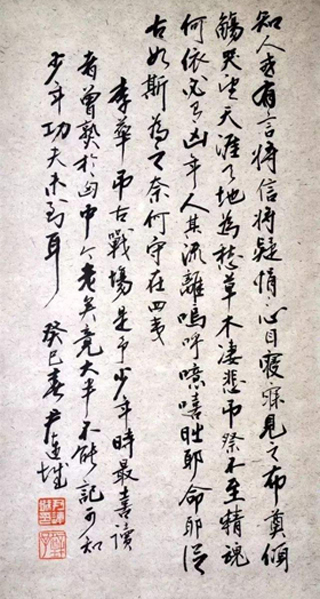 知人或有言将信将疑悁〻心目寢寐見之布奠傾
觴哭望天涯天地為愁草木凄悲弔祭不至精魂
何依必有凶年人其流離嗚呼噫嘻時耶命耶從
古如斯為之奈何守在四夷
李華弔古戰場是予少年時最喜讀
者曾熟於匈中今老矣竟大半不能記可知
少年功夫未到耳 癸巳春 尹連城